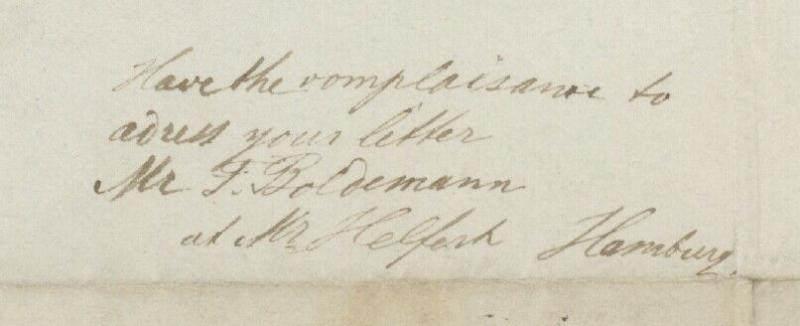 Have the complaisance to
adress your letter
Mr F. Boldemann
at Mr Helferk Hamburg.